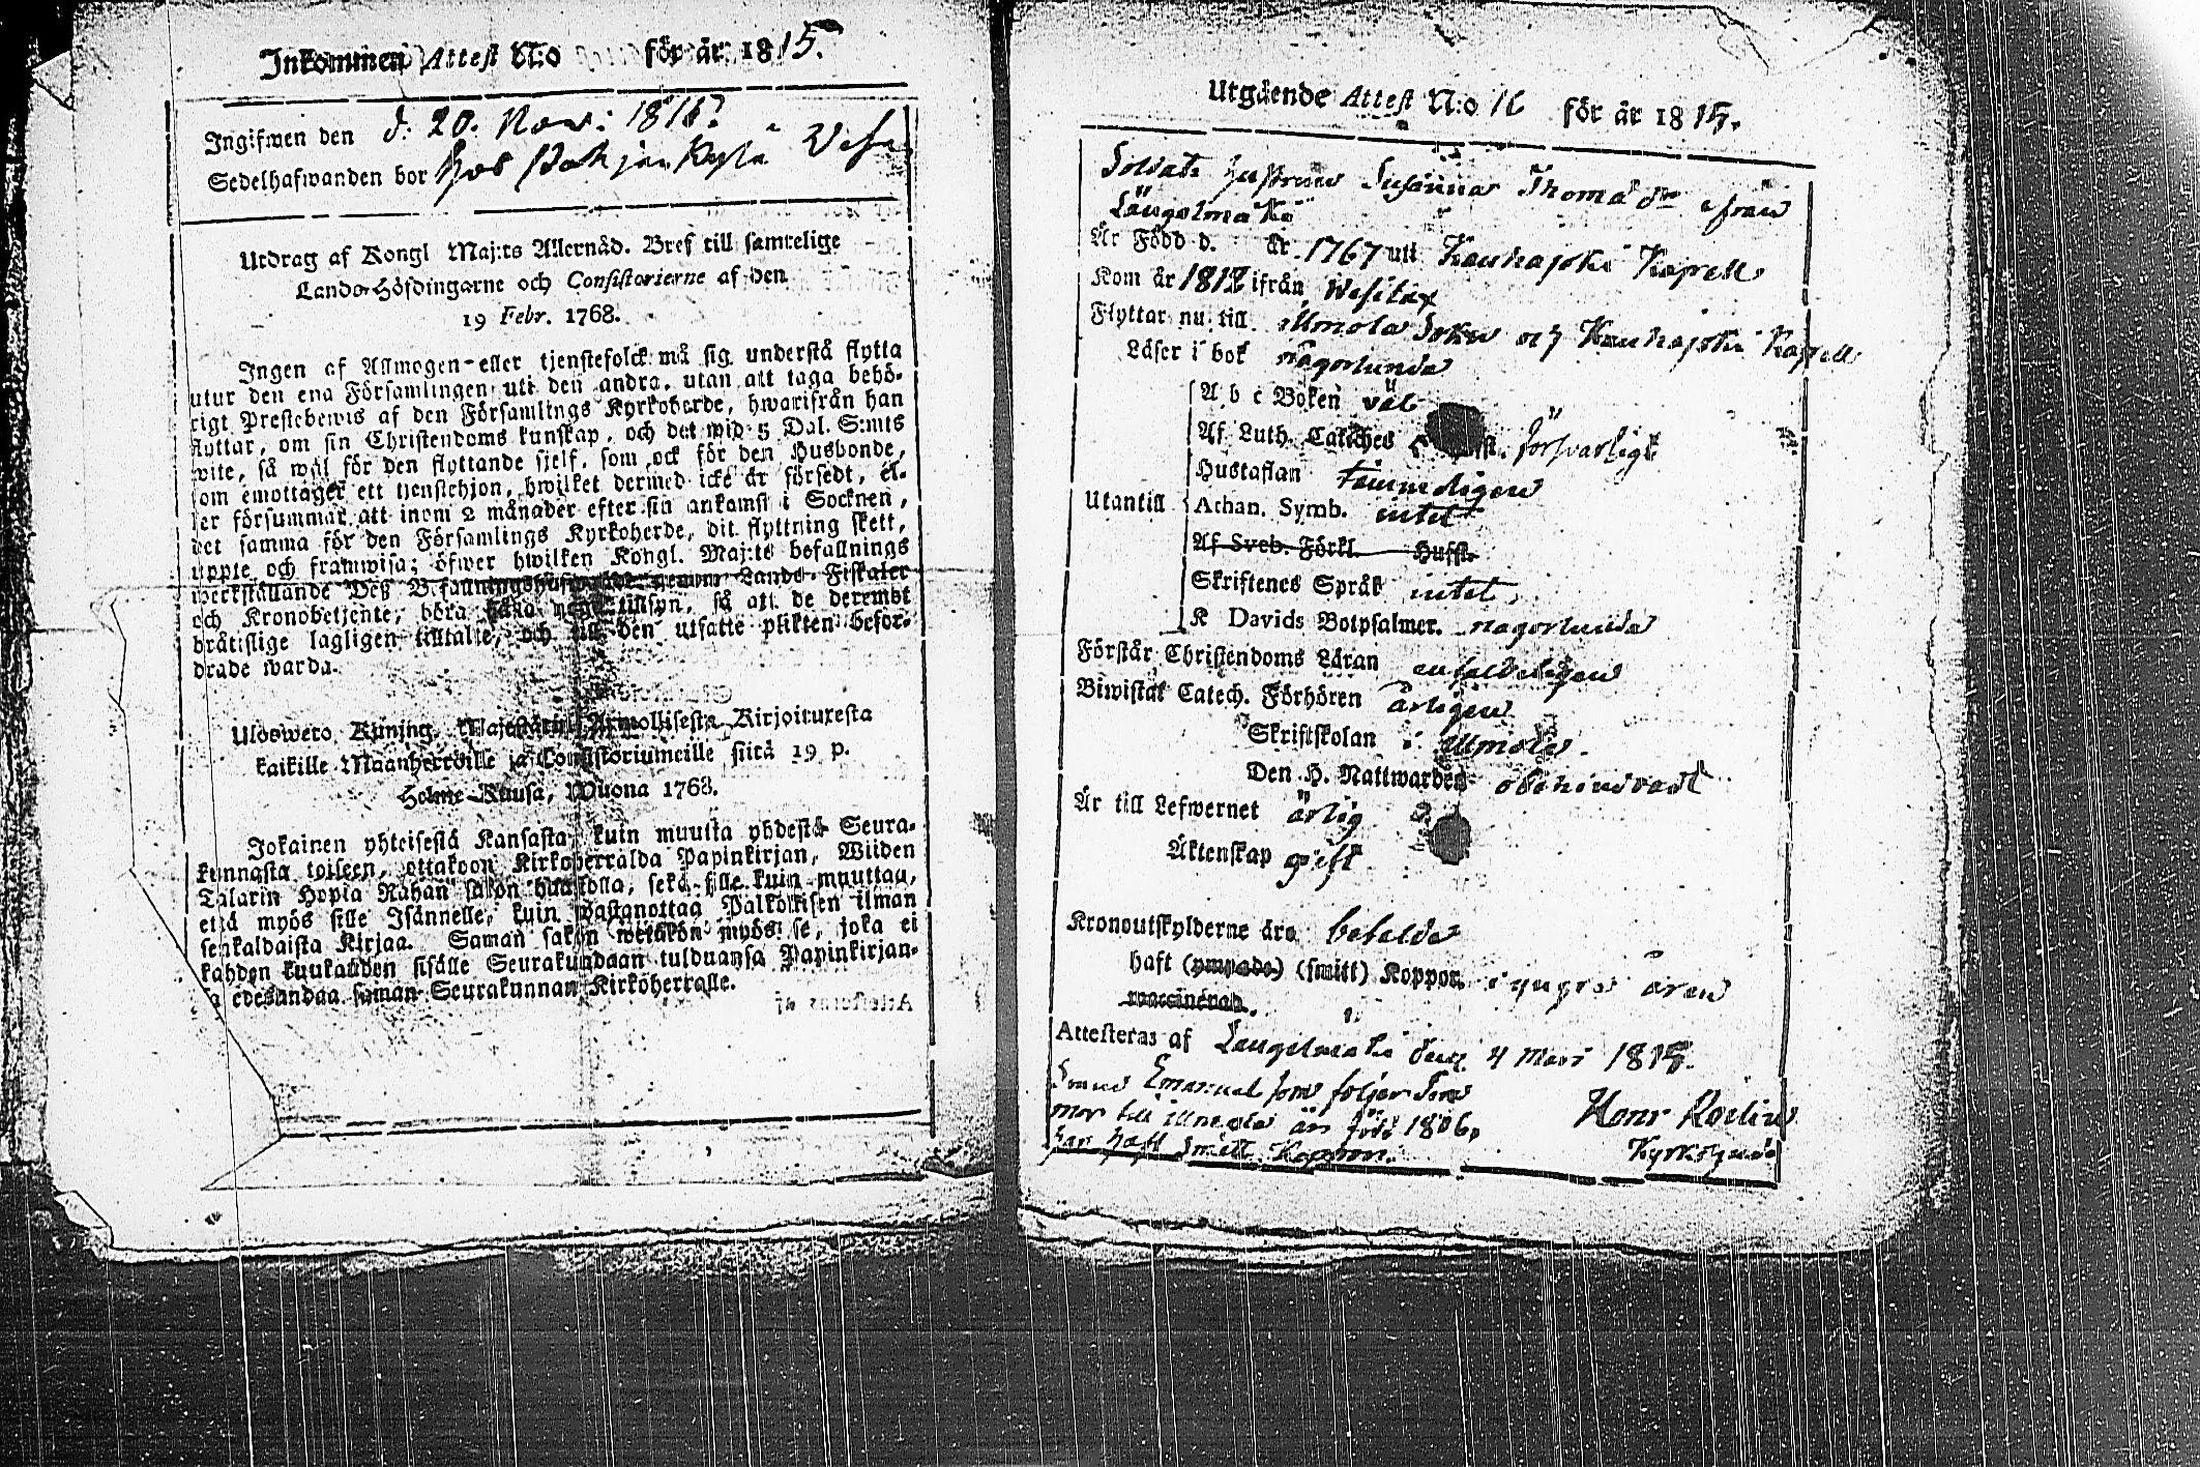 Inkommen Attest N:o för år 1815.
Ingifwen den d. 20. Nov: 1816?
Sedelhafwanden bor hos Pohjan Kylä
Utdrag af Kongl Maj:ts Allernåd. Bref till samtelige
Lands-Höfdingarne och Consistorierne af den
19 Febr. 1768.
Ingen af Allmogen-eller tjenstefolck må sig understå flytta
utur den ena Församlingen uti den andra, utan att taga behö-
rigt Prestebewis af den Församlings Kyrkoherde, hwarifrån han
flyttar, om sin Christendoms kunskap, och det wid 5 Dal. S:mts
wite, så wäl för den flyttande sjelf, som ock för den Husbonde,
som emottager ett tjenstehjon, hwilket dermed icke är försedt, el-
ler försummar att inom 2 månader efter sin ankomst i Socknen,
det samma för den Församlings Kyrkoherde, dit flyttning skett,
uppte och framwisa; öfwer hwilken Kongl. Maj:ts befallnings
werkställande Deß Befallningshafwande genom Lands-Fiskaler
och Kronobetjente, böra hafwa noga tillsyn, så att de deremot
bråtislige lagligen tilltalte, och till den utsatte plikten befor-
drade warda.
Ulosweto Kuning. Majestätin Armollisesta Kirjoituxesta
kaikille Maanherroille ja Consistoriumeille siitä 19 p.
Helme-Kuusa, Wuona 1768.
Jokainen yhteisestä Kansasta, kuin muutta yhdestä Seura-
kunnasta toiseen, ottakoon Kirkoherralda Papinkirjan, Wiiden
Talarin Hopia Rahan sakon uhalla, sekä sille kuin muuttau,
että myös sille Isännelle, kuin wastanottaa Palkollisen ilman
senkaldaista Kirjaa. Saman sakon wetäkön myös se, joka ei
kahden kuukauden sisälle Seurakundaan tulduansa Papinkirjan-
sa edesandaa saman Seurakunnan Kirkoherralle.
Utgående Attest N:o 16 för år 1815.
Soldats hustrun Susanna Thomä dr ifrån
Längelmäki
Är Född d. år 1767 uti Kauhajoki Kapell
Kom år 1812 ifrån Wesilax
Flyttar nu till Ilmola Sokn och Kauhajoki Kapell
Läser i bok någorlunda
A b c Boken väl
Af Luth. Catches försvarligt
Hustaflan temmeligen
Utantill Athan. Symb. intet
Af Sveb. Förkl. Huffst.
Skriftenes Språk intet
K Davids Botpsalmer. någorlunda
Förstår Christendoms Läran enfaldeligen
Biwistat Catech. Förhören årligen
Skriftskolan i Ilmola.
Den H. Nattwarden obehindradt
Är till Lefwernet ärlig
Äktenskap gift
Kronoutskylderne äro betalde
haft (ympade) (smitt) Koppor. i yngre åren
waccinerad.
Attesteras af Längelmäki den 4 Mars 1815.
Sonen Emanuel som följer sin
mor till Ilmola är född 1806,
har haft Smitt Koppor.
Henr Roslin
Kyrkoherde